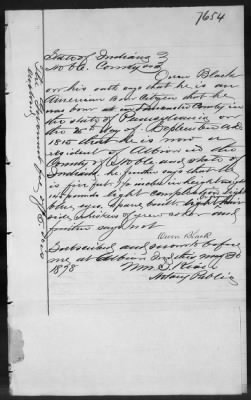 7654
State of Indiana
Noble County
Owen Black
on his oath says that he is an
American Born Citizen that he
was born at in Lancaster County in
the State of Pennsylvania on
the day of September
1815 that he is now a
resident of Albion in the
County of Noble and State
Indiana he further says that he
is five feet inches in height weight
pounds light complexion
blue eyes spare built
side whiskers of grey color and
further says not
Owen Black
Subscribed and sworn to before
me at Albion Ind this May 30
1878
Wm
Notary Public